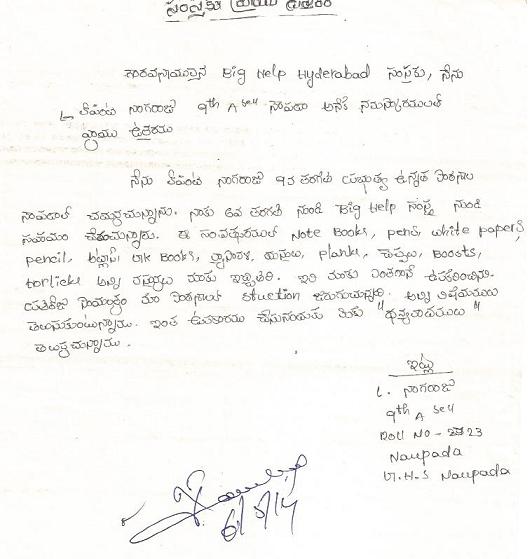 సంస్థకు వ్రాయు ఉత్తరం
గౌరవనీయులైన Big Help Hyderabad సంస్థకు, నేను
L నాగరాజు 9th A sec నౌపడా అనేక నమస్కారములతో
వ్రాయు ఉత్తరము
నేను నాగరాజు 9వ తరగతి ప్రభుత్వ ఉన్నత పాఠశాల
నౌపడాలో చదువుచున్నాను. నాకు 6వ తరగతి నుండి Big Help సంస్థ నుండి
సహాయం చేయుచున్నారు. ఈ సంవత్సరములో Note Books, pens, white papers,
pencil, Books, planks, చెప్పులు, Boosts,
torlicks అన్ని వస్తువులు మాకు ఇచ్చితిరి. ఇవి మాకు ఎంతగానో ఉపకరించినవి.
ప్రతిరోజు సాయంత్రం మా పాఠశాలలో stuction జరుగుచున్నది. అన్ని విషయములు
తెలుసుకుంటున్నాము. ఇంత ఉపకారము చేసినందుకు మీకు "ధన్యవాదములు"
తెలుపుచున్నాము.
ఇట్లు
L. నాగరాజు
9th A sec
Roll No - 23
Naupada
G.H.S Naupada
6/8/14